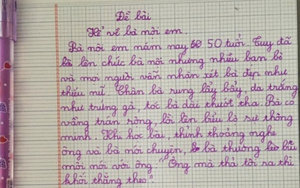 Đề bài
Kể về bà nội em
Bà nội em năm nay 50 tuổi. Tuy đã
lên chức bà nội nhưng nhiều bạn bè
và mọi người vẫn nhận xét bà đẹp như
thiếu nữ. Chân bà rung lẩy bẩy, da trắng
như trứng gà, tóc bà dầu thướt tha. Bà có
vầng trán rộng, lồi lên biểu lộ sự thông
minh. Khi học bài, thỉnh thoảng nghe
ông và bà nói chuyện, bà thường
mới nói với ông "Ông mà thả tôi ra thì
khối thằng theo".